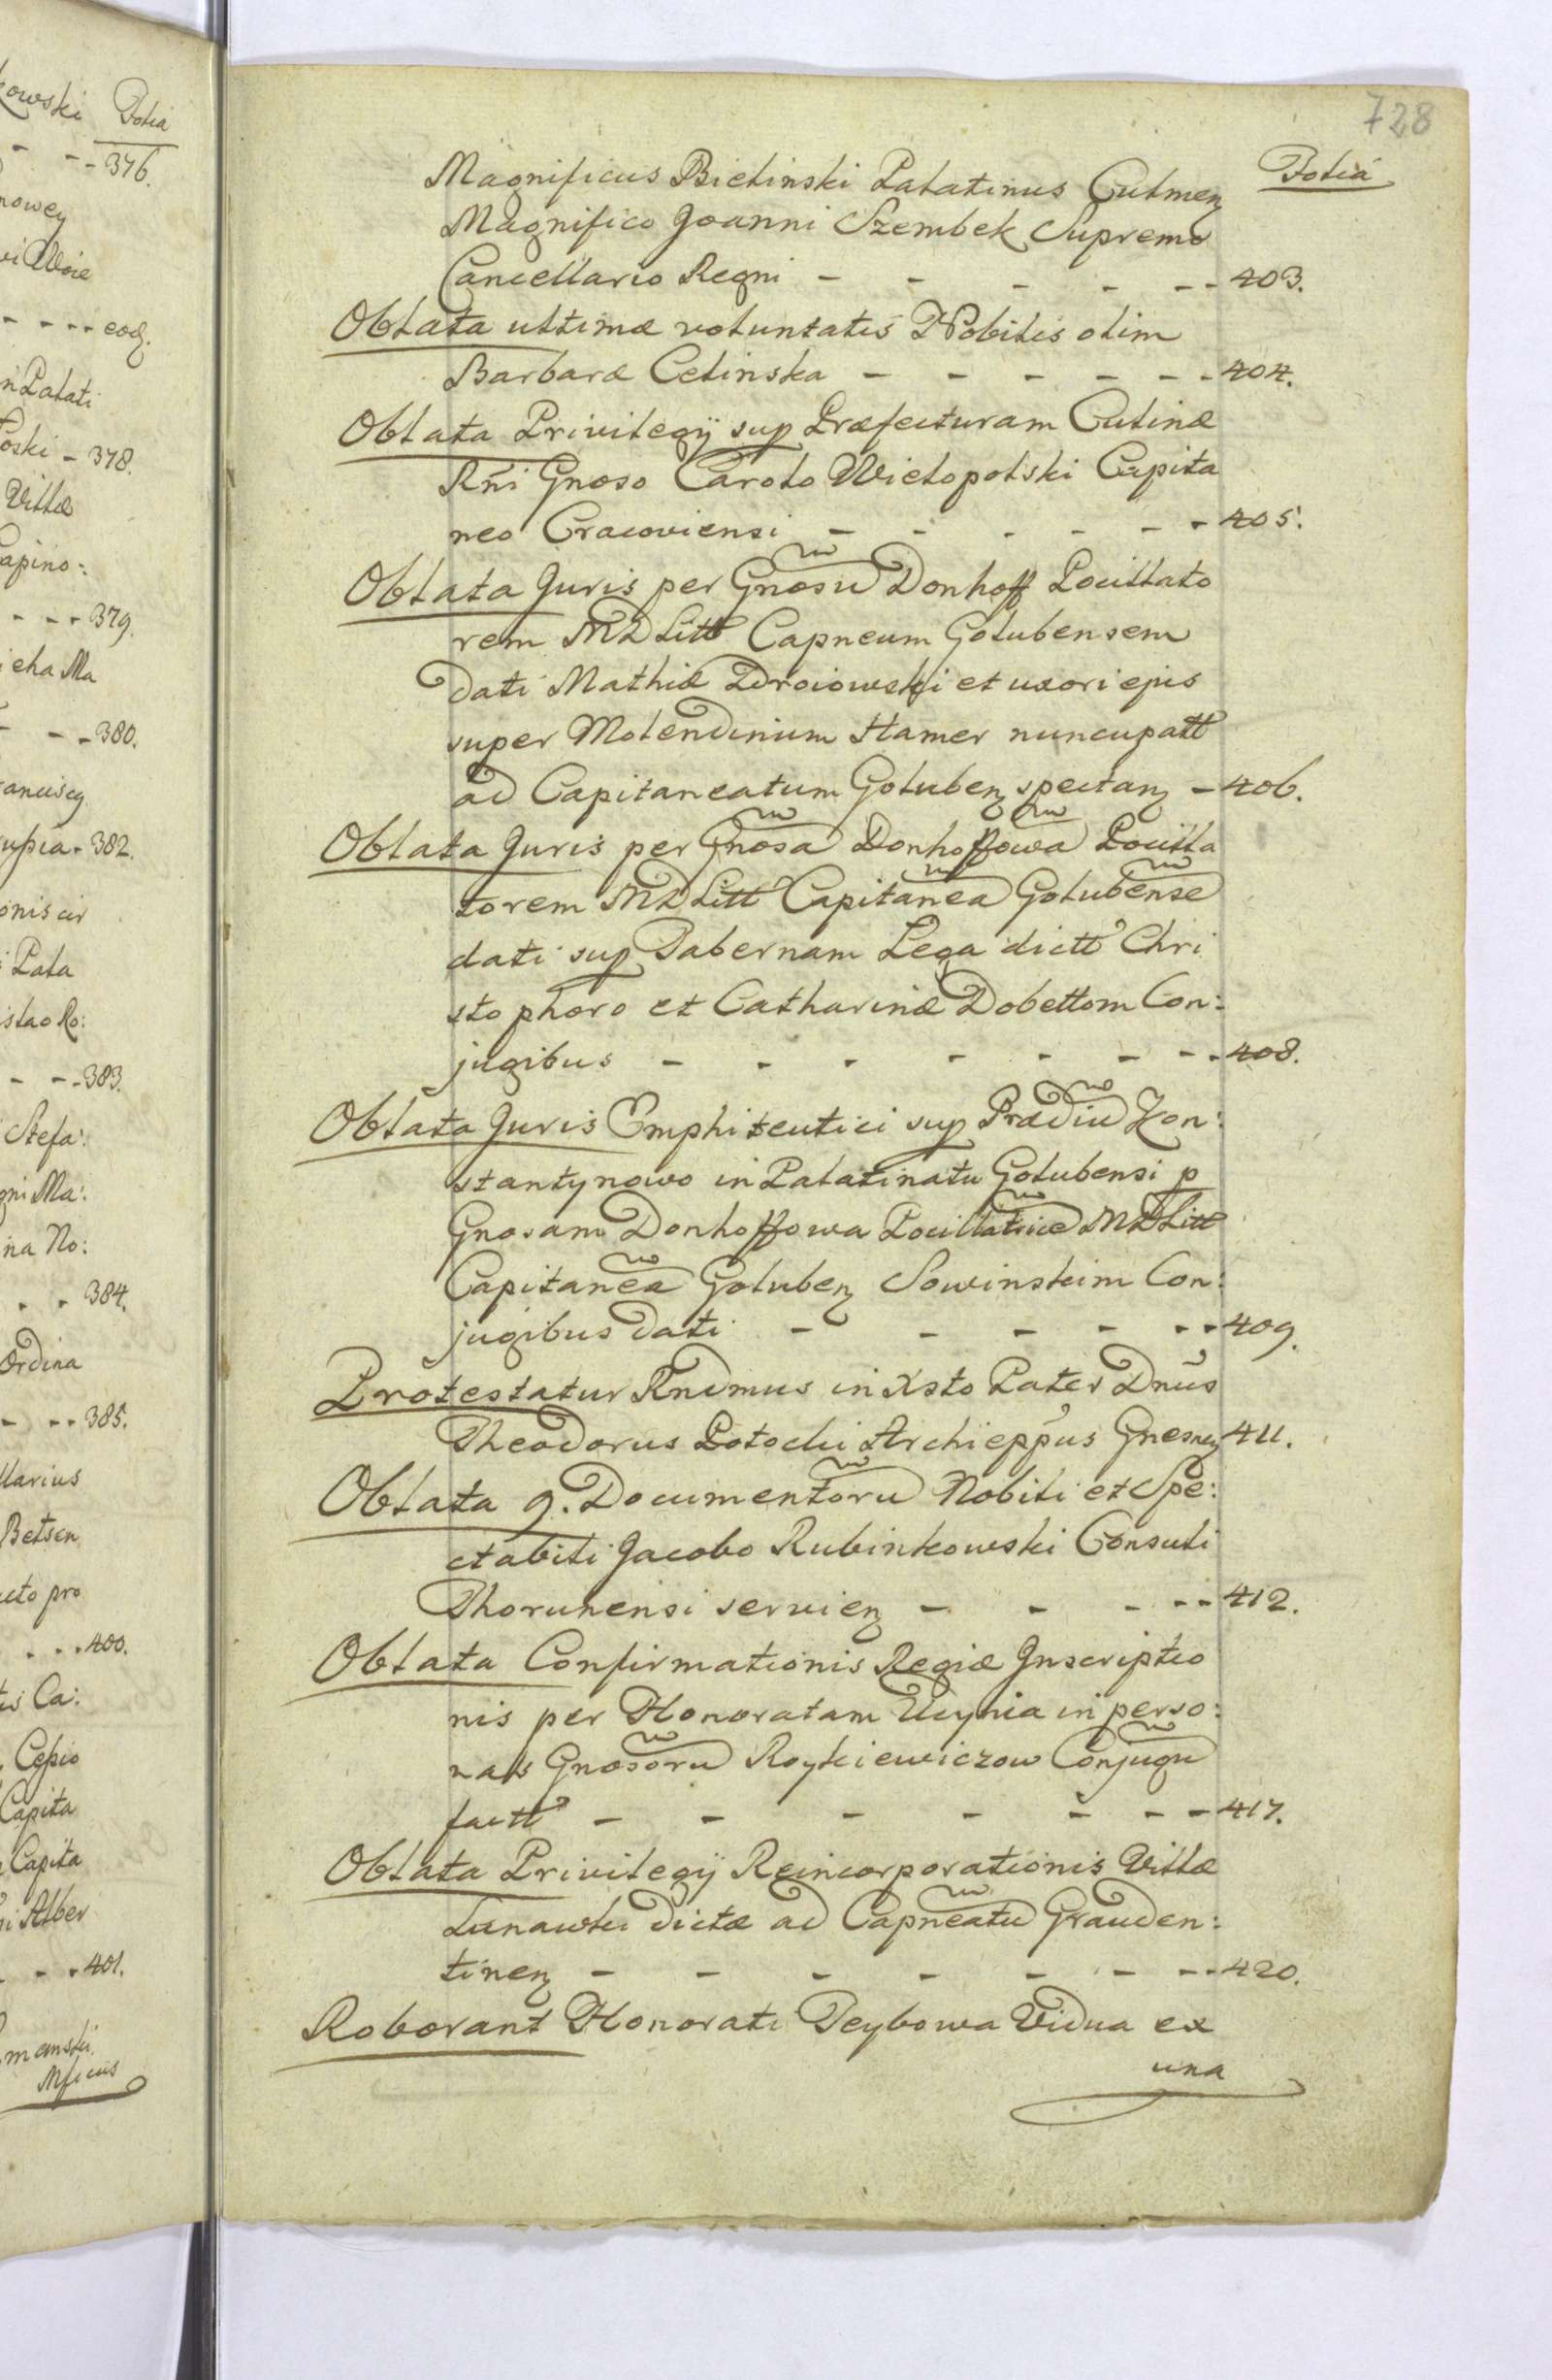 kowski Folia
- - - 376.
nowey
vi Woie
- - - - eod.
n Palati
ski - 378.
Villæ
apino:
- - - 379.
ieha Ma
- - - 380.
ancisci
upia - 382.
onis cir
i Pala
islao Ro:
- - - 383.
Stefa:
gni Ma:
na No:
. . 384.
Ordina
- - - 385.
llarius
Betsen
cto pro
. . . 400.
is Ca:
Cessio
Capita
Capita
i Alber
- - - 401.
mcinski
Mficus
728
Folia
Magnificus Bielinski Palatinus Culmen
Magnifico Joanni Szembek Supremo
Cancellario Regni - - - - - - 403.
Oblata ultimæ voluntatis Nobilis olim
Barbaræ Celinska - - - - - - 404.
Oblata Privilegij sup Præfecturam Culinæ
Rñi Gnoso Carolo Wielopolski Capita
neo Cracoviensi - - - - - - 405.
Oblata Juris per Gnosu Donhoff Pocillato
rem MD Litt Capneum Golubensem
dati Mathiæ Droiowski et uxori ejus
super Molendinum Hamer nuncupatt
ad Capitaneatum Goluben spectan - 406.
Oblata Juris per Gnosa Donhoffowa Pocilla
torem MD Litt Capitanea Golubense
dati sup Tabernam Lega dictt Chri
stophoro et Catharinæ Dobettom Con:
jugibus - - - - - - - - 408.
Oblata Juris Emphiteutici sup Prædiu Kon:
stantynowo in Palatinatu Golubensi p
Gnosam Donhoffowa Pocillatrice MD Litt
Capitanea Goluben Sowinskim Con:
jugibus dati - - - - - - 409.
Protestatur Rndmus in Xsto Pater Dnus
Theodorus Potocki Archieppus Gnesnen 411.
Oblata 9. Documentoru Nobili et Spe:
ctabili Jacobo Rubinkowski Consuli
Thorunensi servien - - - - - 412.
Oblata Confirmationis Regiæ Inscriptio
nis per Honoratam in perso:
nas Gnosoru Roykiewiczow Conjugu
factt - - - - - - - 417.
Oblata Privilegij Reincorporationis Villæ
Lunawki dictæ ad Capneatu Grauden:
tinen - - - - - - - - 420.
Roborant Honorati Teybowa Vidua ex
una